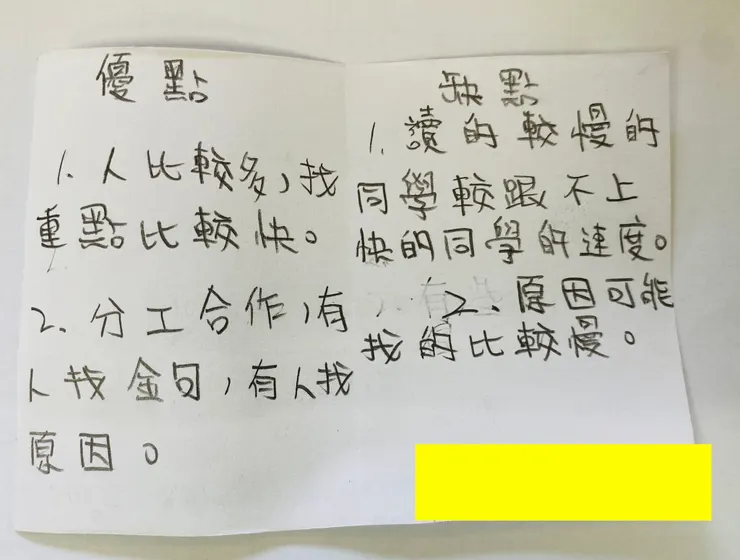 優點
1. 人比較多，找
重點比較快。
2. 分工合作，有
人找金句，有人找
原因。
缺點
1. 讀的較慢的
同學較跟不上
快的同學的速度。
2. 原因可能
找的比較慢。